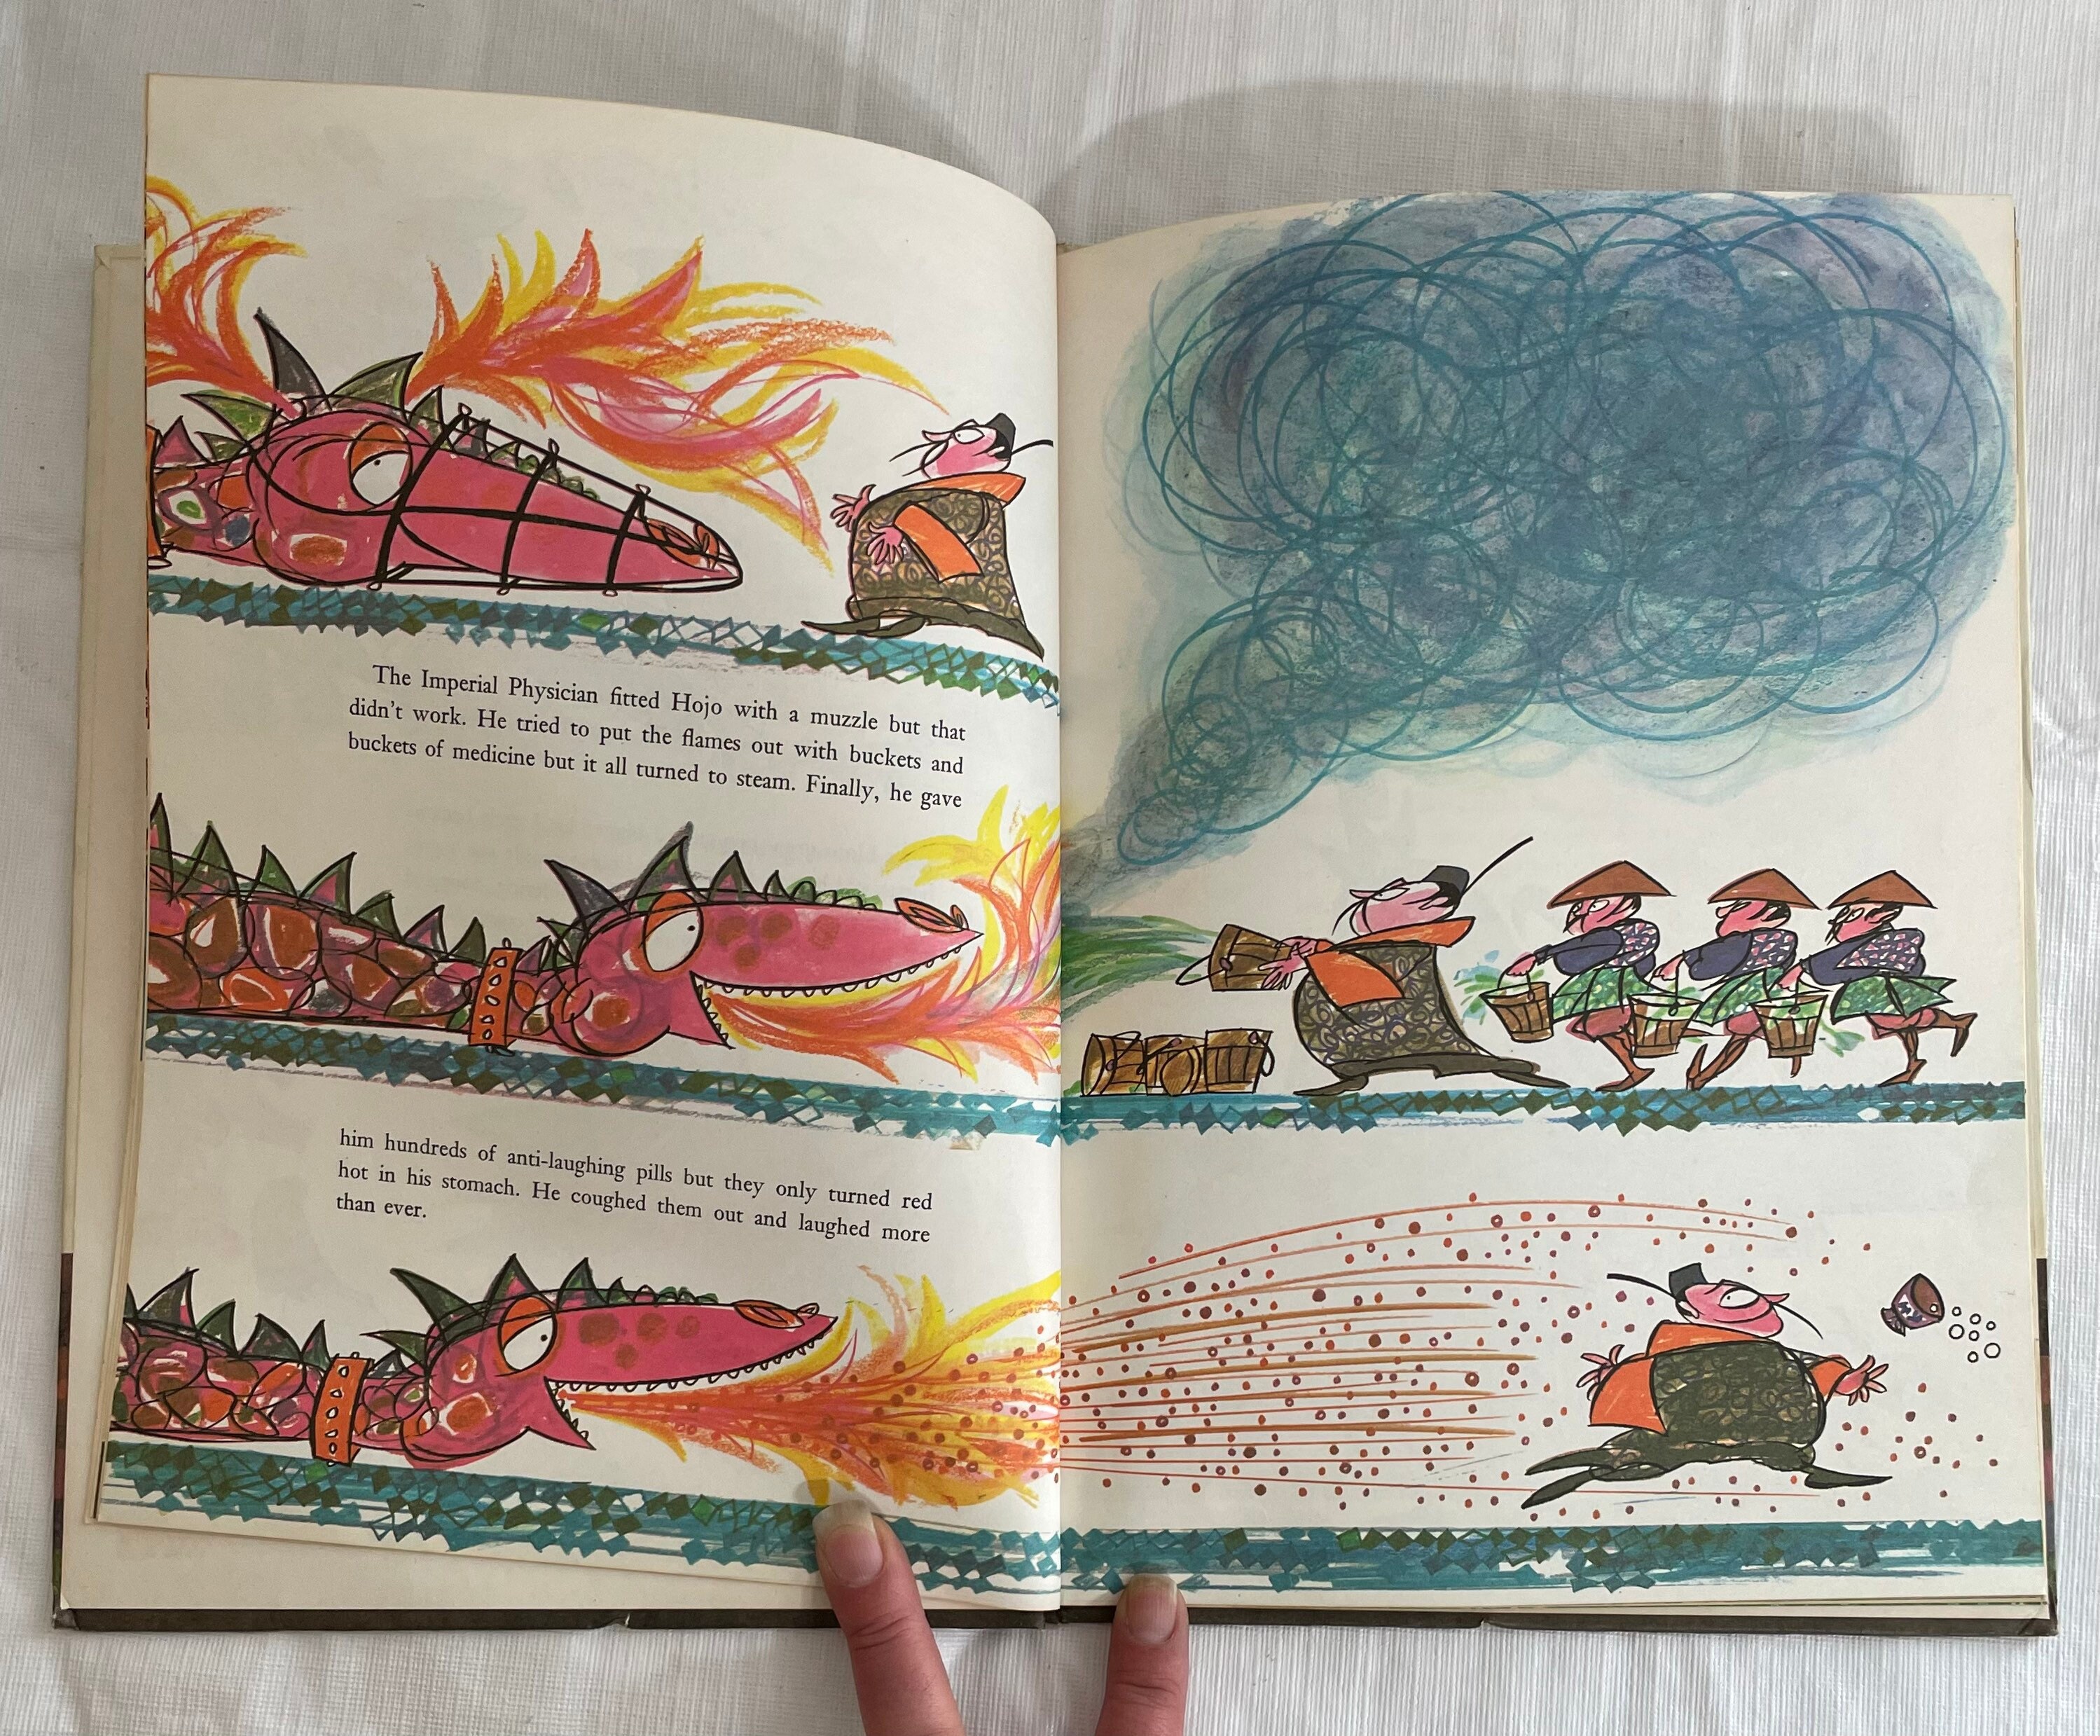 The Imperial Physician fitted Hojo with a muzzle but that
didn't work. He tried to put the flames out with buckets and
buckets of medicine but it all turned to steam. Finally, he gave
him hundreds of anti-laughing pills but they only turned red
hot in his stomach. He coughed them out and laughed more
than ever.